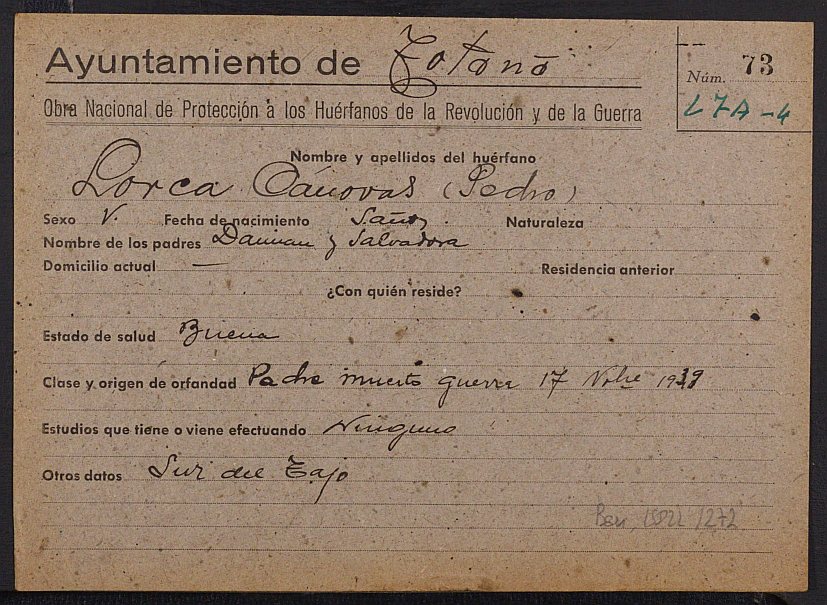 Ayuntamiento de Totana
Núm. 73
L7A-4
Obra Nacional de Protección a los Huérfanos de la Revolución y de la Guerra
Nombre y apellidos del huérfano
Lorca Cánovas (Pedro)
Sexo V. Fecha de nacimiento 5 años Naturaleza
Nombre de los padres Damian y Salvadora
Domicilio actual — Residencia anterior
¿Con quién reside?
Estado de salud Buena
Clase y origen de orfandad Padre muerto guerra 17 Nbre 1938
Estudios que tiene o viene efectuando Ninguno
Otros datos Sur del Tajo
/272